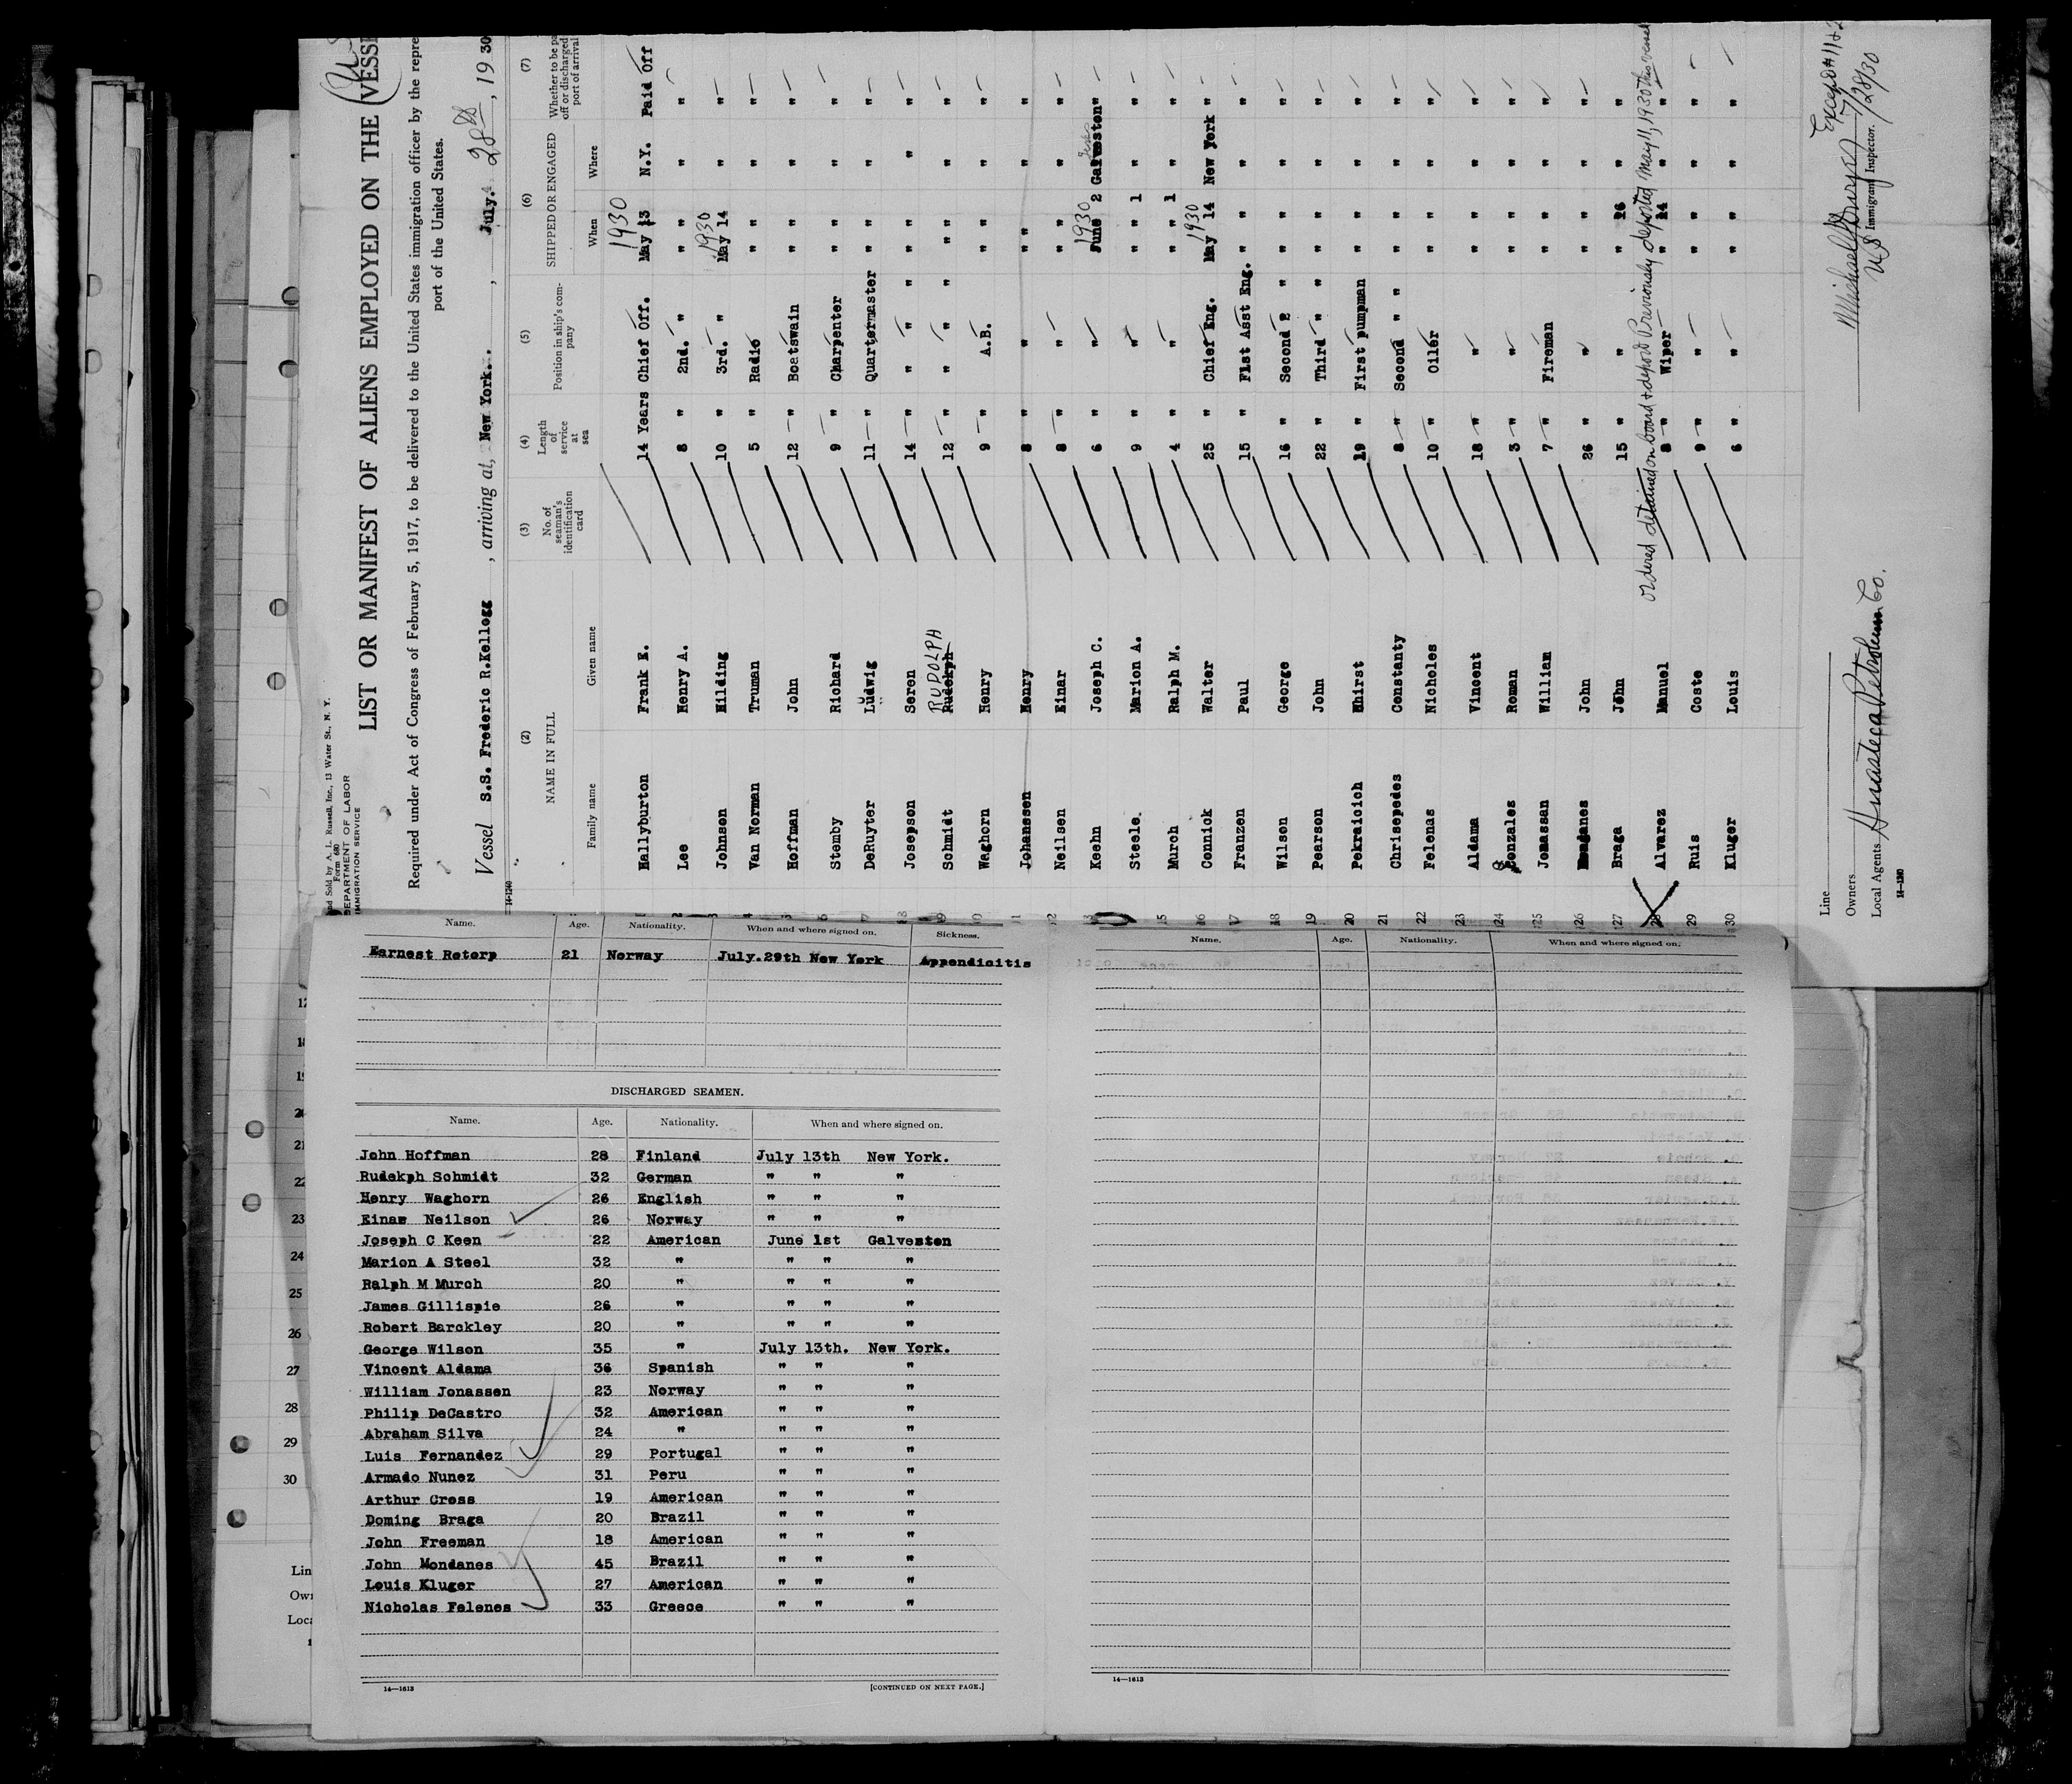 nd Sold by A. L. Russell, Inc., 13 Water St., N. Y.
Form 680
DEPARTMENT OF LABOR
IMMIGRATION SERVICE
LIST OR MANIFEST OF ALIENS EMPLOYED ON THE VESSE
Required under Act of Congress of February 5, 1917, to be delivered to the United States immigration officer by the repre
port of the United States.
Vessel S.S. Frederic R.Kellogg , arriving at, New York. , July. 28th , 19 30
14-1240
(2) (3) (4) (5) (6) (7)
NAME IN FULL No. of seaman's identification card Length of service at sea Position in ship's company SHIPPED OR ENGAGED Whether to be pa off or discharged port of arrival
Family name Given name When Where
1 Hallyburton Frank E. 14 Years Chief Off. 1930 May 13 N.Y. Paid Off
2 Lee Henry A. 8 " 2nd. " " " " "
3 Johnson Hilding 10 " 3rd. " 1930 May 14 " "
4 Van Norman Truman 5 " Radio " " " "
5 Hoffman John 12 " Boatswain " " " "
6 Stemby Richard 9 " Charpenter " " " "
7 DeRuyter Ludwig 11 " Quartermaster " " " "
8 Josepson Soren 14 " " " " " " "
9 Schmidt Rudolph RUDOLPH 12 " " " " " " "
10 Waghorn Henry 9 " A.B. " " " "
11 Johanssen Henry 8 " " " " " "
12 Neilsen Einar 8 " " " " " "
13 Keehn Joseph C. 6 " " 1930 June 2 Galveston "
Steele. Marion A. 9 " " " " 1 " "
15 Murch Ralph M. 4 " " " " 1 " "
16 Connick Walter 25 " Chief Eng. 1930 May 14 New York "
17 Franzen Paul 15 " F1st Asst Eng. " " " "
18 Wilson George 16 " Second E " " " " "
19 Pearson John 22 " Third " " " " " "
20 Pekraicich Whirst 19 " First pumpman " " " "
21 Chrisepedes Constanty 8 " Second " " " " " "
22 Felenas Nicholes 10 " Oiler " " " "
23 Aldama Vincent 18 " " " " " "
24 Gonzales Roman 3 " " " " " "
25 Jonassan William 7 " Fireman " " " "
26 Mondanes John 26 " " " " " "
27 Braga John 15 " " " 26 " "
ordered detained on board & deport Previously deported May 11, 1930 this vessel
28 Alvarez Manuel 8 " Wiper " 14 " "
29 Ruis Coste 9 " " " " " "
30 Kluger Louis 6 " " " " " "
Line
Owners
Local Agents Huasteca Petroleum Co.
14-1240
Except #11+2
7/28/30
U S Immigrant Inspector.
Name. Age. Nationality. When and where signed on. Sickness.
Earnest Retorp 21 Norway July.29th New York Appendicitis
DISCHARGED SEAMEN.
Name. Age. Nationality. When and where signed on.
John Hoffman 28 Finland July 13th New York.
Rudekph Schmidt 32 German " " "
Henry Waghorn 26 English " " "
Einaw Neilson 26 Norway " " "
Joseph C Keen 22 American June 1st Galveston
Marion A Steel 32 " " " "
Ralph M Murch 20 " " " "
James Gillispie 26 " " " "
Robert Barckley 20 " " " "
George Wilson 35 " July 13th. New York.
Vincent Aldama 36 Spanish " " "
William Jonassen 23 Norway " " "
Philip DeCastro 32 American " " "
Abraham Silva 24 " " " "
Luis Fernandez 29 Portugal " " "
Armado Nunez 31 Peru " " "
Arthur Cross 19 American " " "
Doming Braga 20 Brazil " " "
John Freeman 18 American " " "
John Mondanes 45 Brazil " " "
Louis Kluger 27 American " " "
Nicholas Felenes 33 Greece " " "
14—1613
[CONTINUED ON NEXT PAGE.]
Name. Age. Nationality. When and where signed on.
14—1613
20
21
22
23
24
25
26
27
28
29
30
Lin
Own
Loca